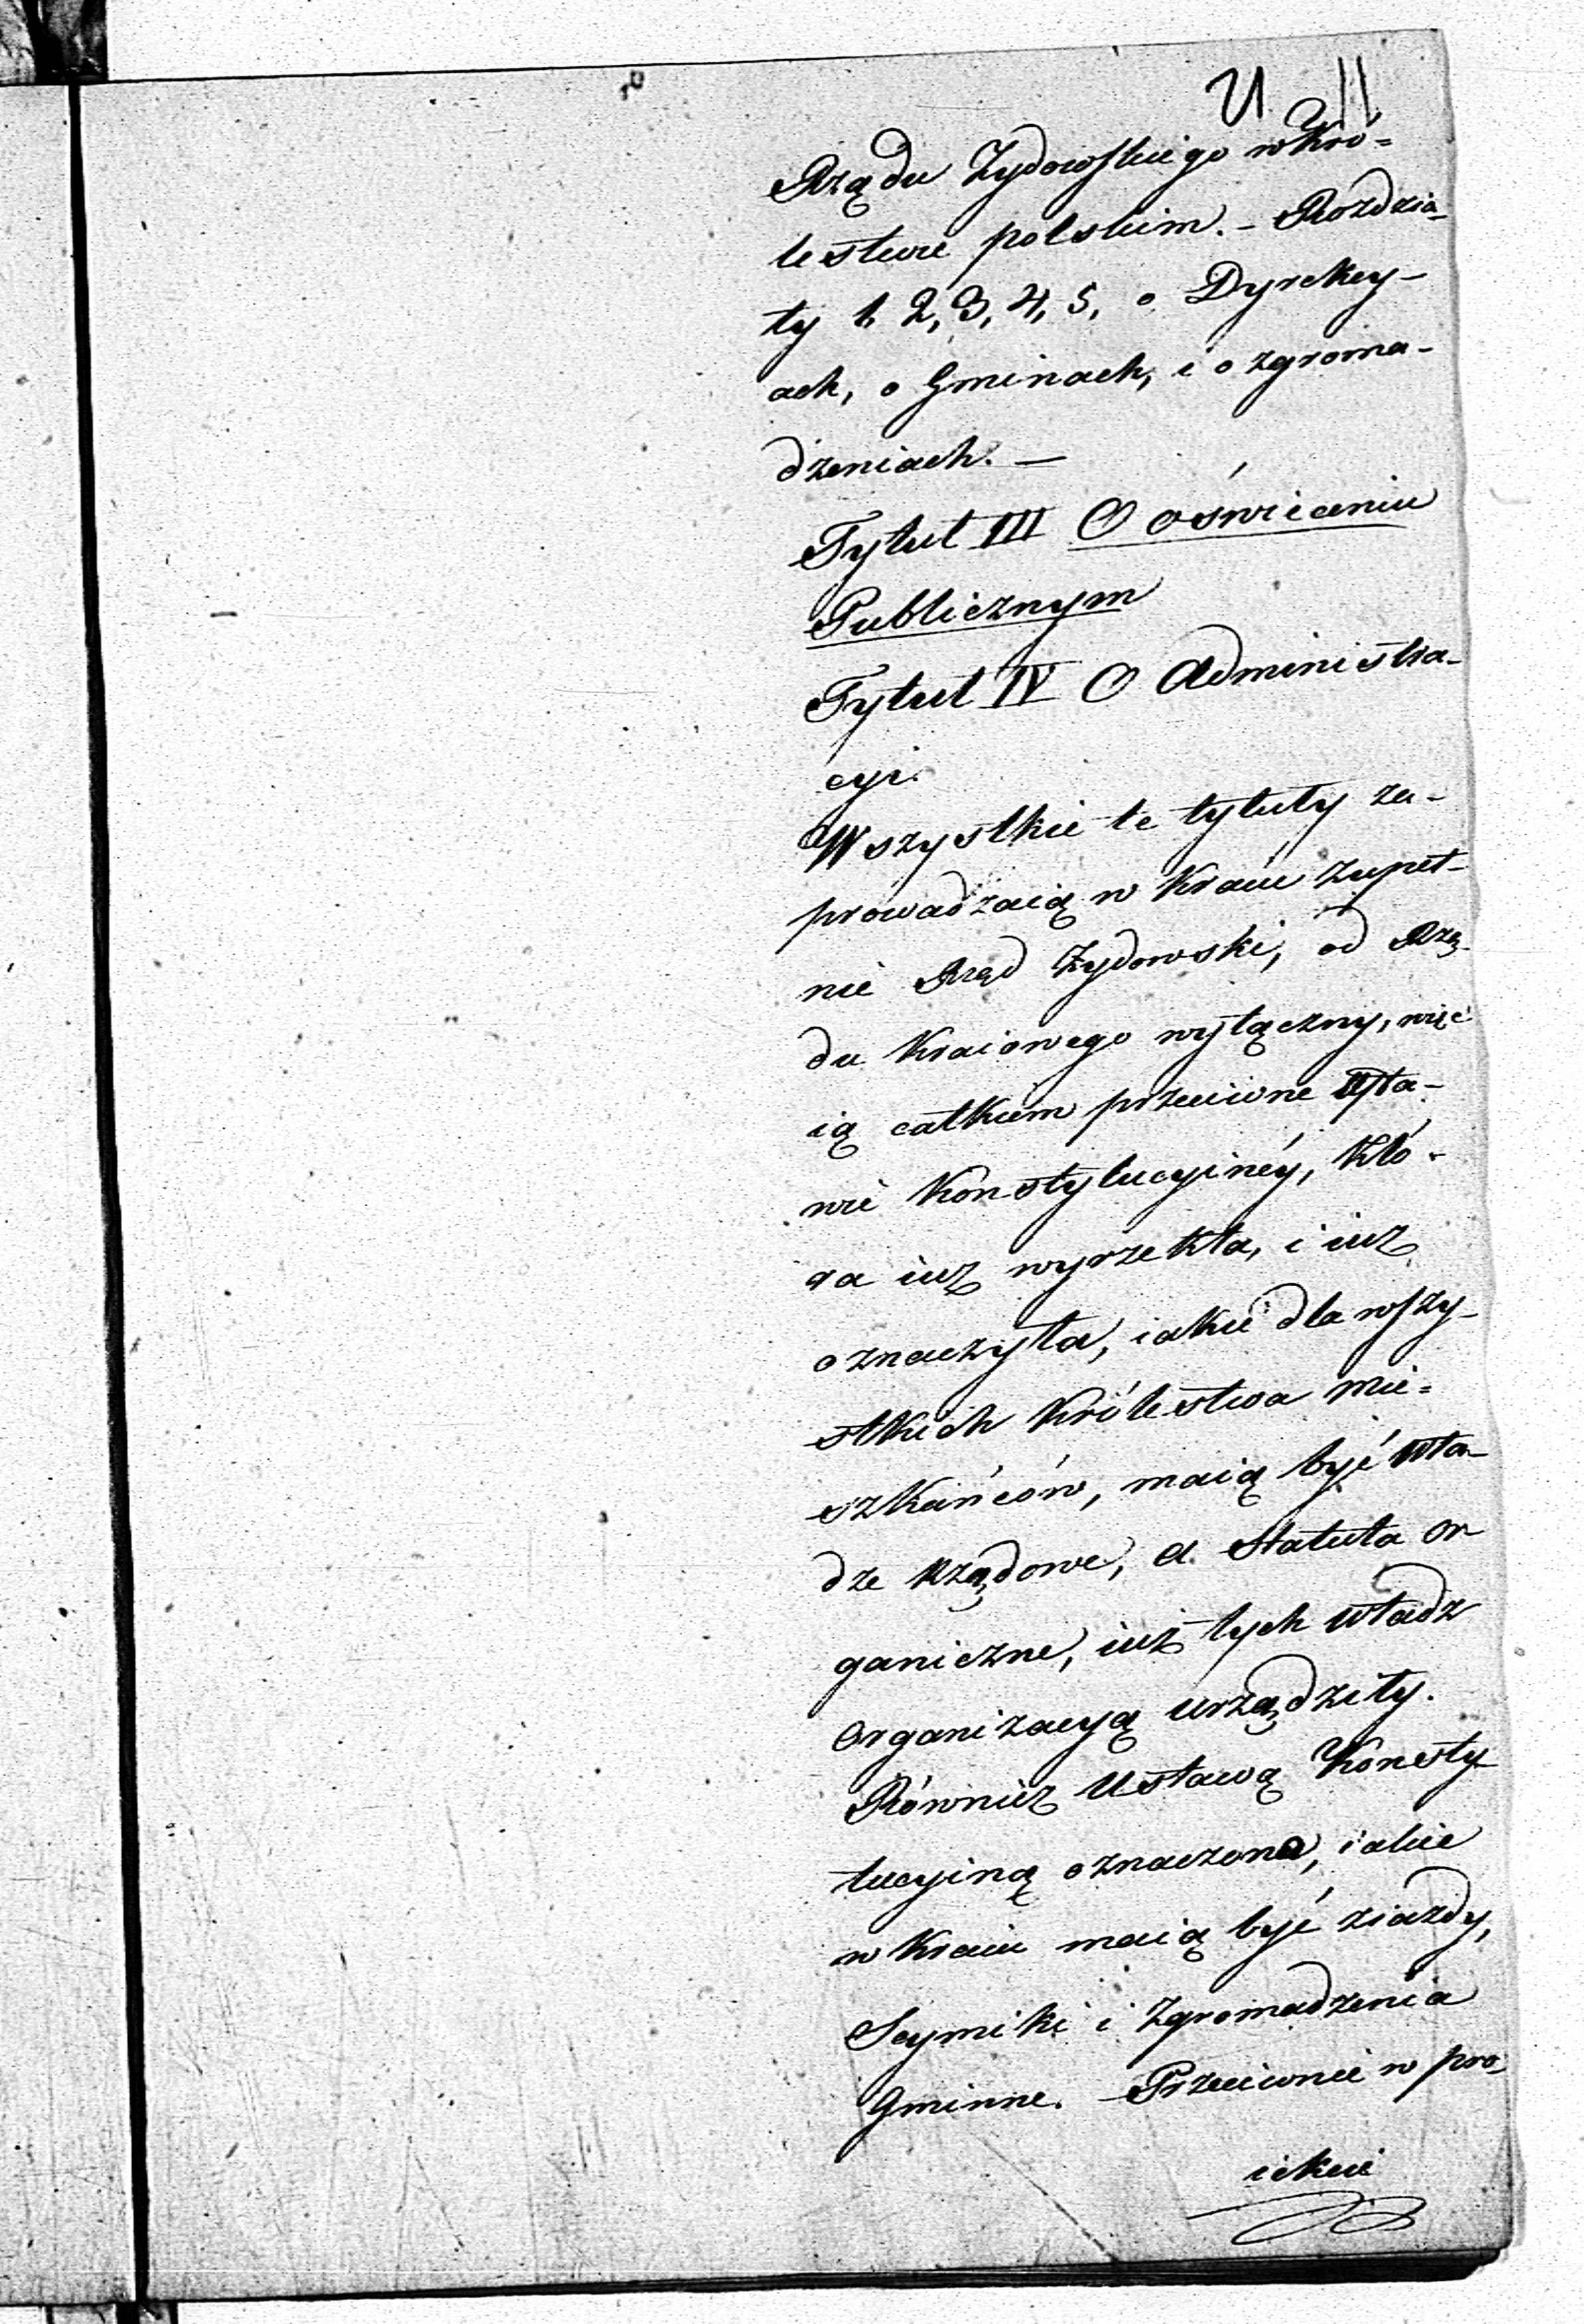 11
Rządu Żydowskiego w Kró=
lestwie polskim. – Rozdzia-
ły 1, 2, 3, 4, 5, o Dyrekcy-
ach, o Gminach, i o zgroma-
dzeniach. —
Tytuł III O oświeceniu
Publicznym
Tytuł IV O Administra-
cyi.
Wszystkie te tytuły za-
prowadzaią w Kraiu zupeł-
nie Rząd Żydowski, od Rzą-
du Kraiowego wyłączny, więc
ią całkiem przeciwne Usta-
wie Konstytucyinéy, któ-
ra iuż wyrzekła, i iuż
oznaczyła, iakie dla wszy-
stkich Królestwa mie=
szkańców, maią być Wła-
dze Rządowe, a Statuta or
ganiczne, iuż tych Władz
Organizacyą urządziły.
Również Ustawą Konsty-
tucyiną oznaczono, iakie
w Kraiu maią być ziazdy,
Seymiki i Zgromadzenia
Gminne. – Przeciwnie w pro-
iekcie